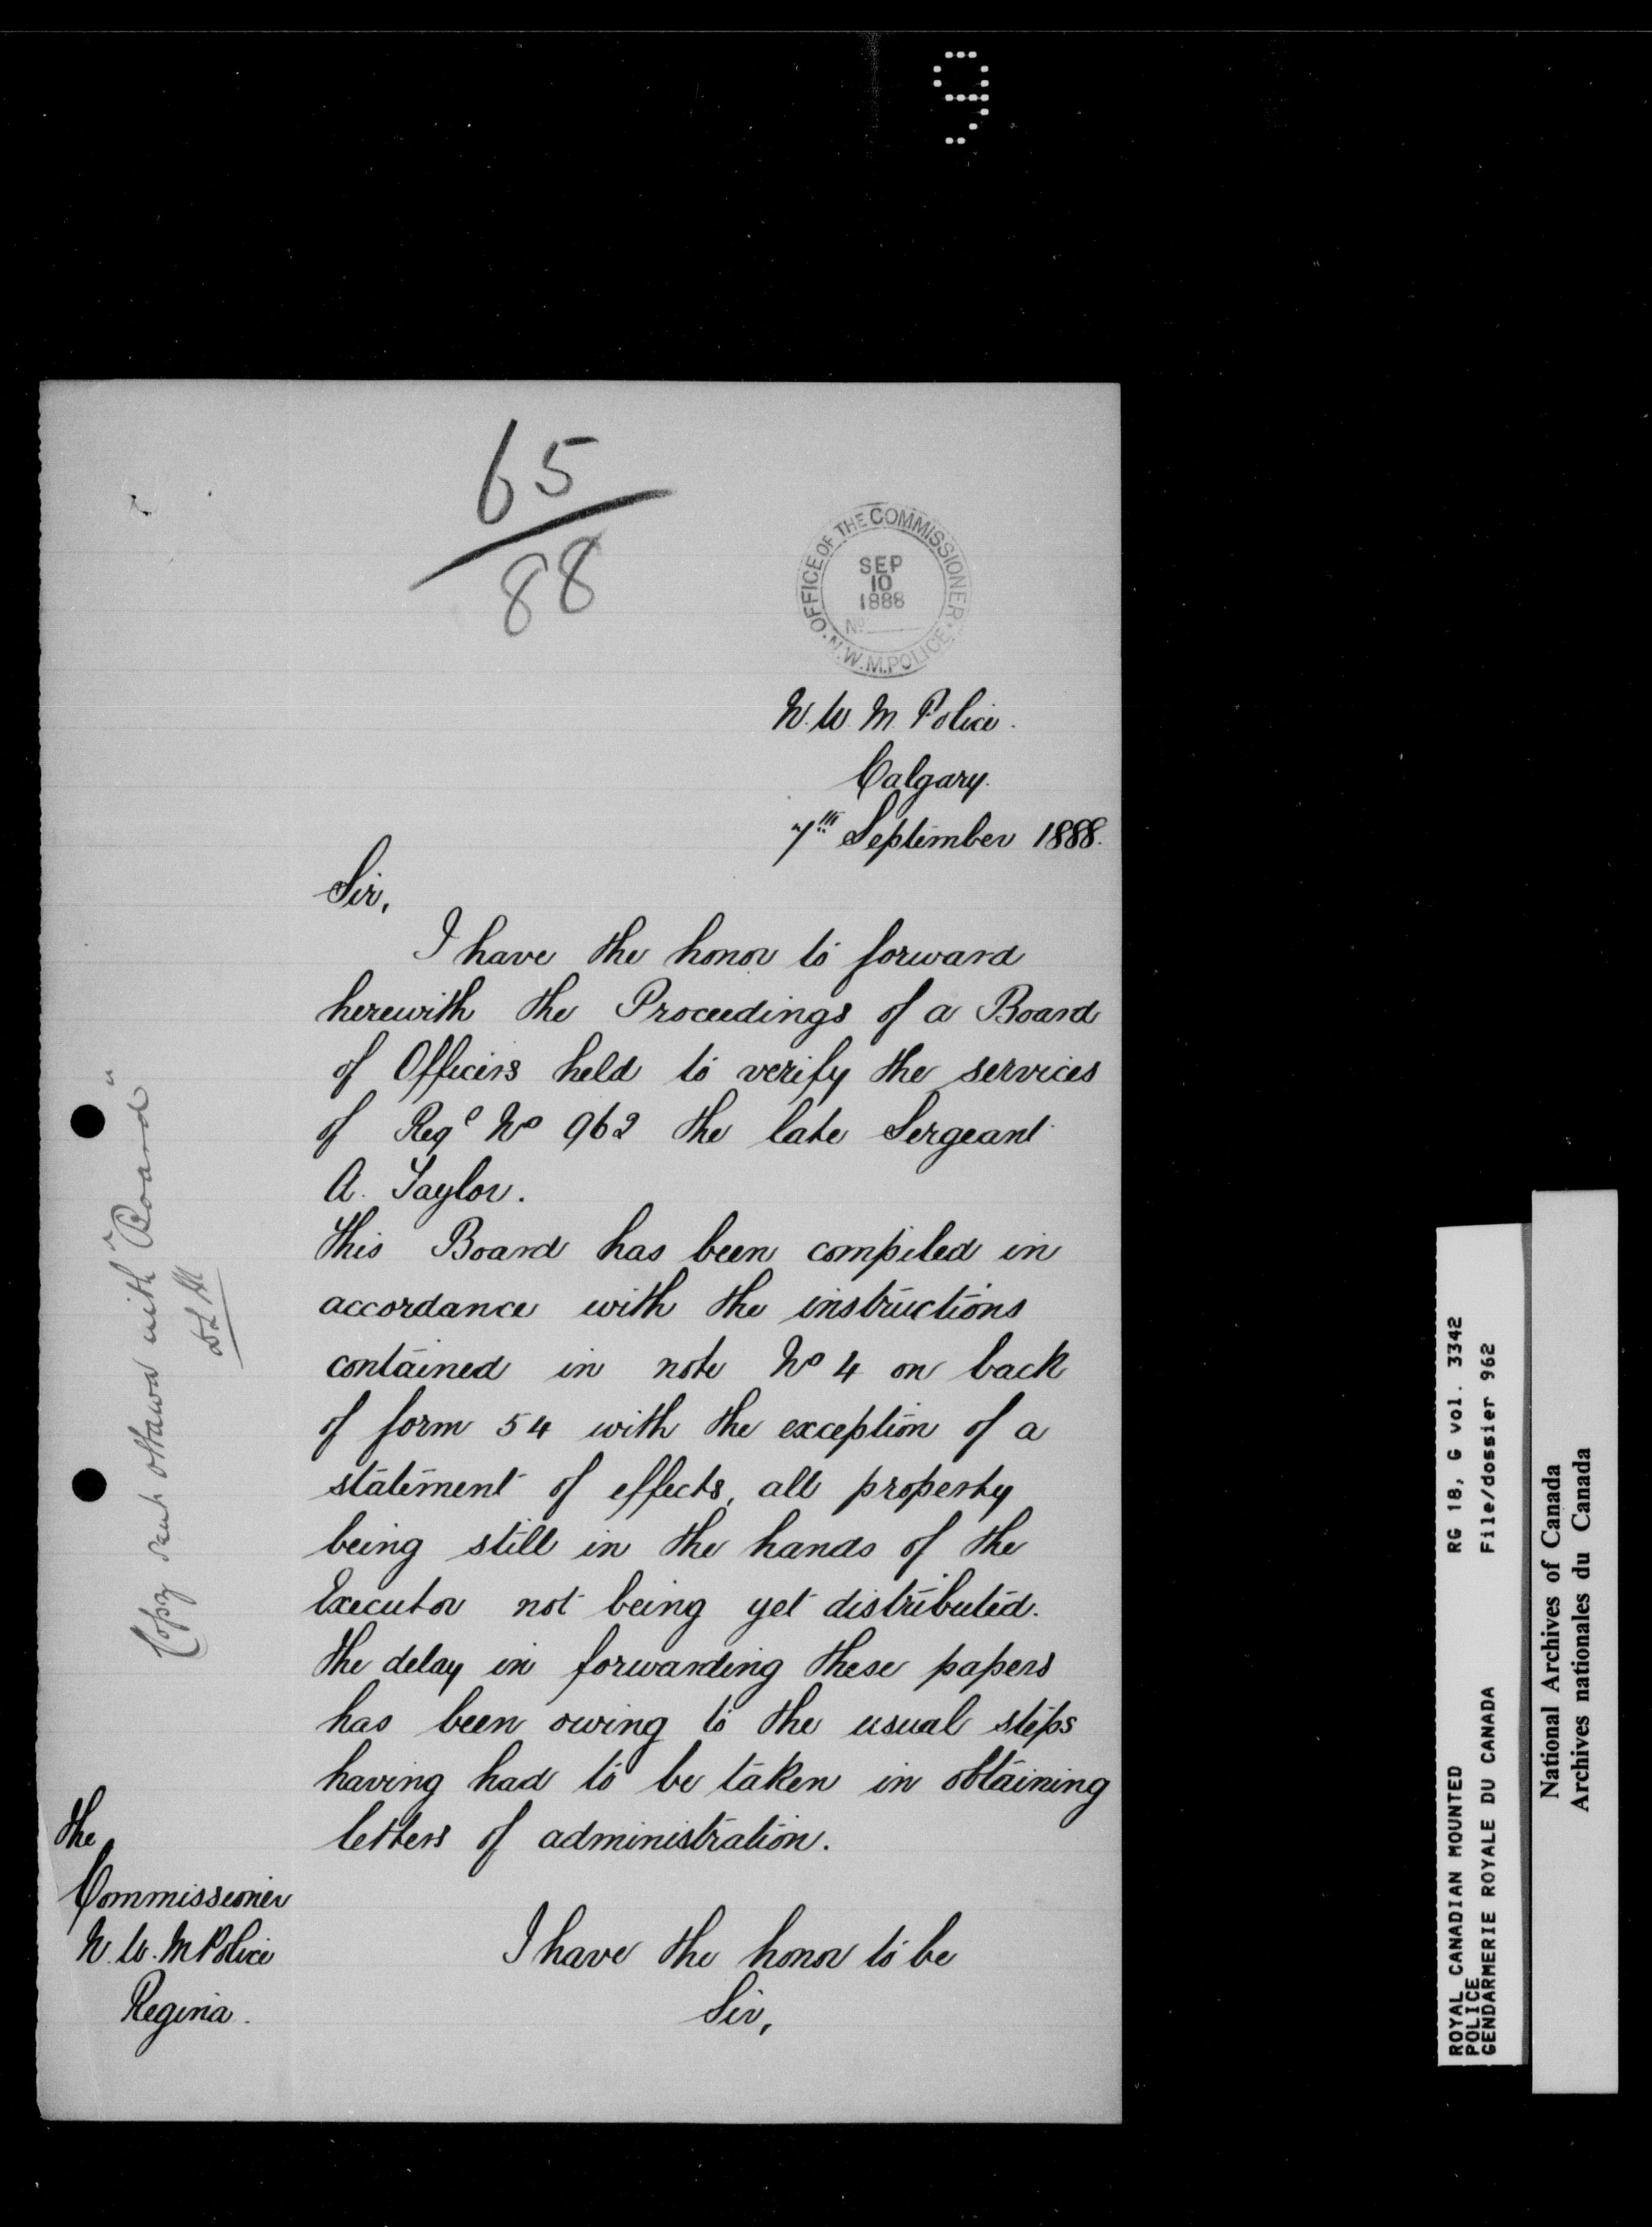 65
88
OFFICE OF THE COMMISSIONER
SEP
10
1888
No
N.W.M. POLICE
N. W. M. Police.
Calgary.
7th September 1888.
Sir,
I have the honor to forward
herewith the Proceedings of a Board
of Officers held to verify the services
of Regl No 962 the late Sergeant
A. Taylor.
This Board has been compiled in
accordance with the instructions
contained in note No 4 on back
of form 54 with the exception of a
statement of effects, all property
being still in the hands of the
Executor not being yet distributed.
The delay in forwarding these papers
has been owing to the usual steps
having had to be taken in obtaining
letters of administration.
I have the honor to be
Sir,
The
Commissioner
N. W. M Police
Regina.
Copy sent Ottawa with "Board"
ROYAL CANADIAN MOUNTED
POLICE
GENDARMERIE ROYALE DU CANADA
RG 18, G vol. 3342
File/dossier 962
National Archives of Canada
Archives nationales du Canada